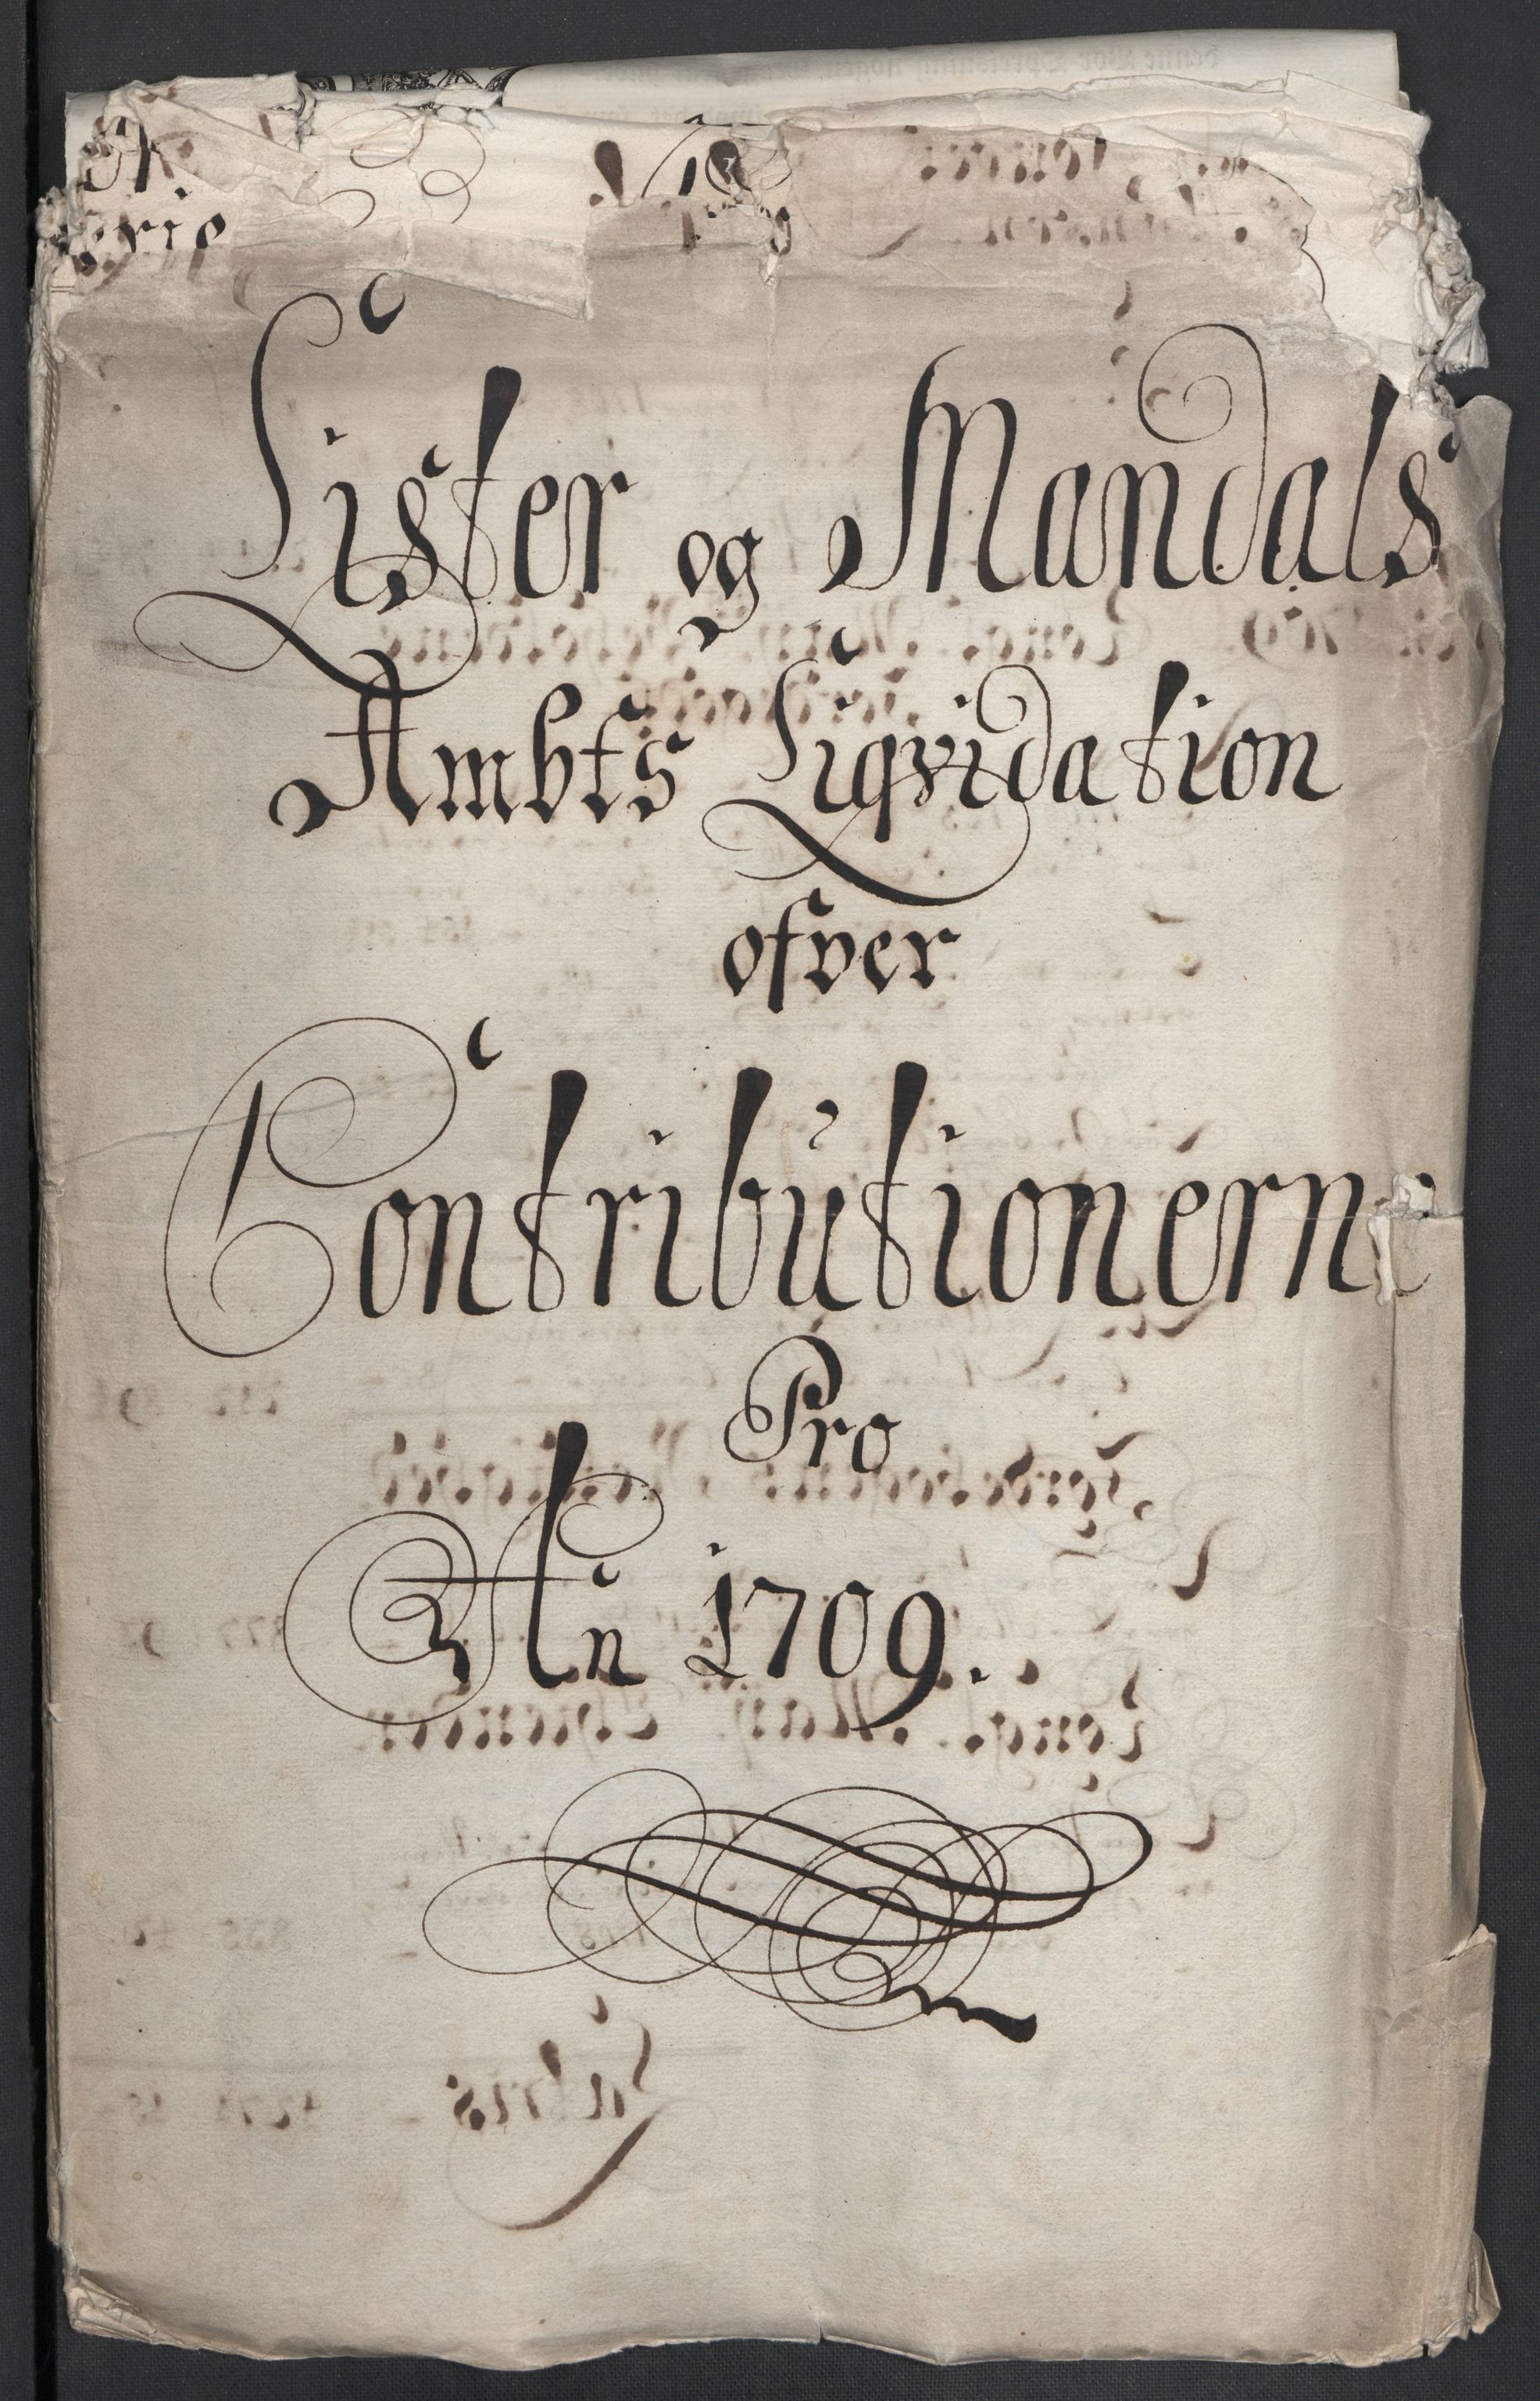 Lister og Mandals
Ambts Liqvidation
ofver
Contributionerne
Pro
An̄ 1709.